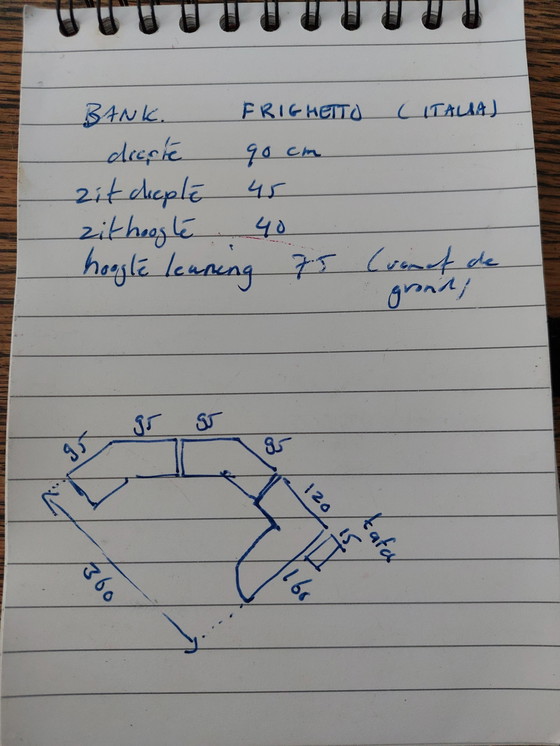 BANK. FRIGHETTO (ITALIA)
diepte 90 cm
zit diepte 45
zithoogte 40
hoogte leuning 75 (vanaf de
grond)
95 95 95 95
120
15 tafel
160
360